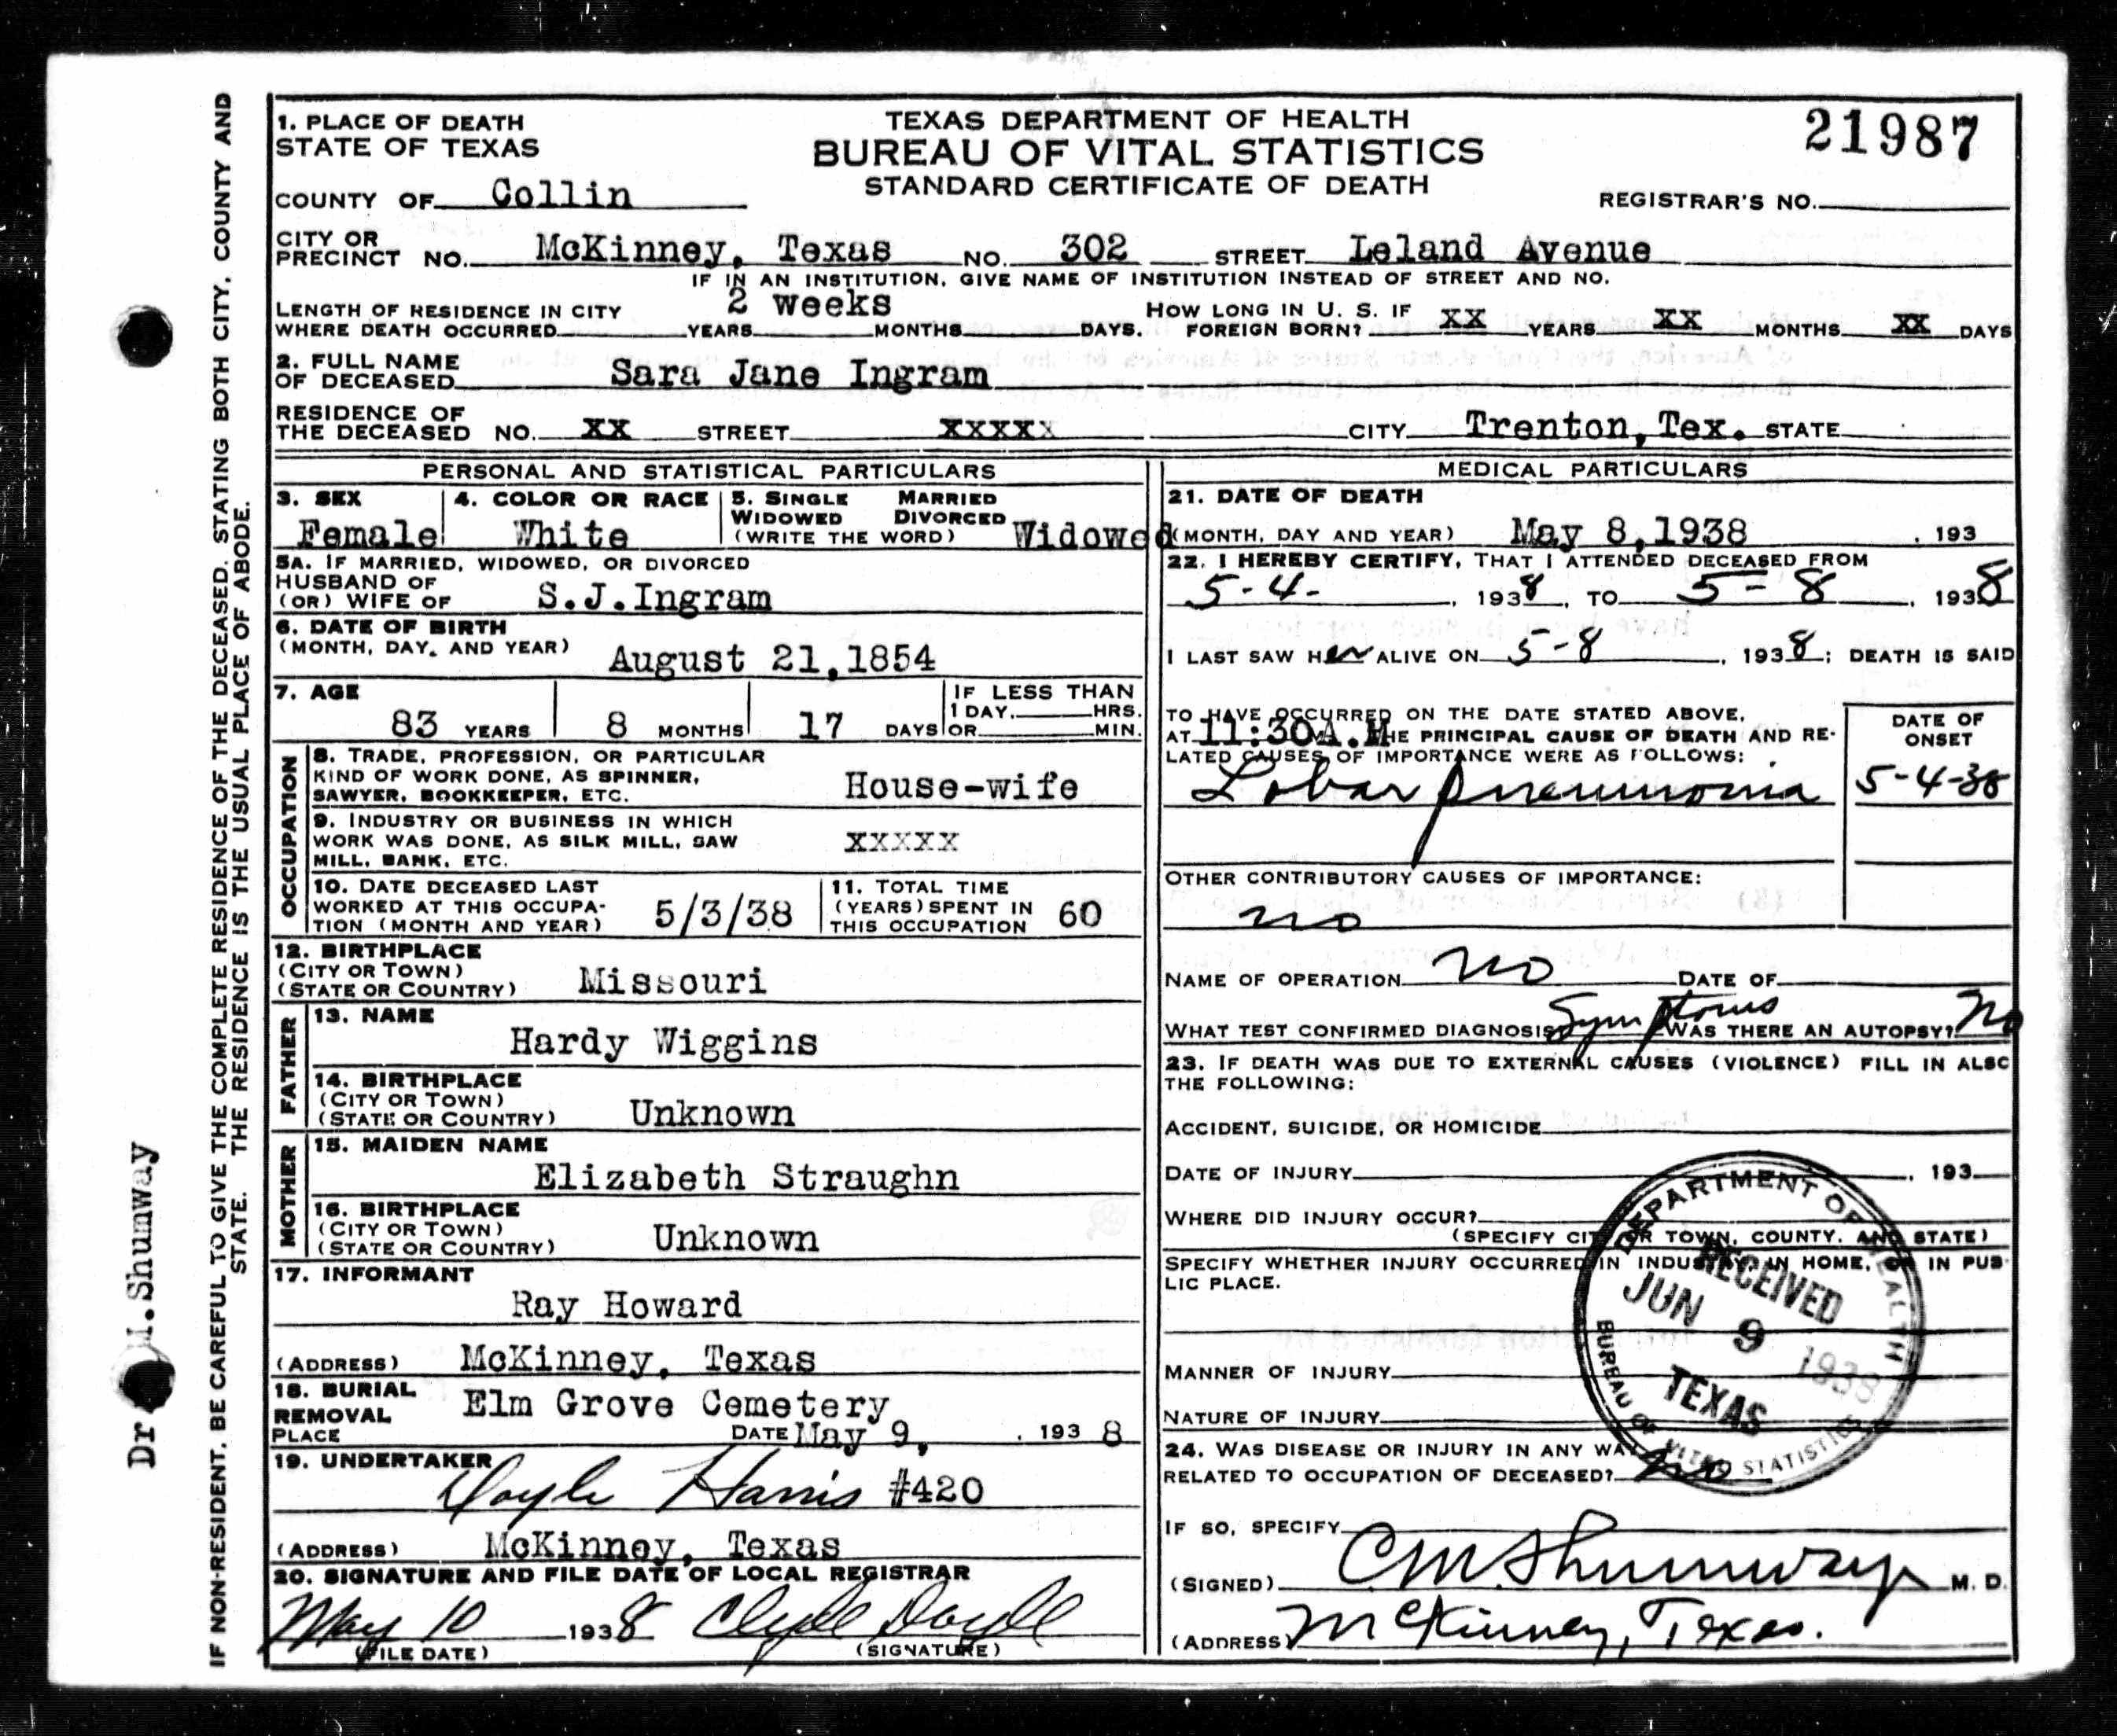 1. PLACE OF DEATH
STATE OF TEXAS
TEXAS DEPARTMENT OF HEALTH
BUREAU OF VITAL STATISTICS
STANDARD CERTIFICATE OF DEATH
21987
COUNTY OF Collin
REGISTRAR'S NO.
CITY OR
PRECINCT NO. McKinney, Texas NO. 302 STREET Leland Avenue
IF IN AN INSTITUTION, GIVE NAME OF INSTITUTION INSTEAD OF STREET AND NO.
LENGTH OF RESIDENCE IN CITY 2 weeks HOW LONG IN U. S. IF
WHERE DEATH OCCURRED YEARS MONTHS DAYS. FOREIGN BORN? XX YEARS XX MONTHS XX DAYS
2. FULL NAME
OF DECEASED Sara Jane Ingram
RESIDENCE OF
THE DECEASED NO. XX STREET XXXXX CITY Trenton, Tex. STATE
PERSONAL AND STATISTICAL PARTICULARS
3. SEX
Female
4. COLOR OR RACE
White
5. SINGLE MARRIED
WIDOWED DIVORCED
(WRITE THE WORD) Widowed
5A. IF MARRIED, WIDOWED, OR DIVORCED
HUSBAND OF
(OR) WIFE OF S.J.Ingram
6. DATE OF BIRTH
(MONTH, DAY, AND YEAR) August 21,1854
7. AGE
83 YEARS 8 MONTHS 17 DAYS
IF LESS THAN
1 DAY, HRS.
OR MIN.
OCCUPATION
8. TRADE, PROFESSION, OR PARTICULAR
KIND OF WORK DONE, AS SPINNER,
SAWYER, BOOKKEEPER, ETC. House-wife
9. INDUSTRY OR BUSINESS IN WHICH
WORK WAS DONE, AS SILK MILL, SAW
MILL, BANK, ETC. XXXXX
10. DATE DECEASED LAST
WORKED AT THIS OCCUPA-
TION (MONTH AND YEAR) 5/3/38
11. TOTAL TIME
(YEARS) SPENT IN
THIS OCCUPATION 60
12. BIRTHPLACE
(CITY OR TOWN)
(STATE OR COUNTRY) Missouri
FATHER
13. NAME
Hardy Wiggins
14. BIRTHPLACE
(CITY OR TOWN)
(STATE OR COUNTRY) Unknown
MOTHER
15. MAIDEN NAME
Elizabeth Straughn
16. BIRTHPLACE
(CITY OR TOWN)
(STATE OR COUNTRY) Unknown
17. INFORMANT
Ray Howard
(ADDRESS) McKinney, Texas
18. BURIAL
REMOVAL Elm Grove Cemetery
PLACE DATE May 9, , 1938
19. UNDERTAKER
Doyle Harris #420
(ADDRESS) McKinney, Texas
20. SIGNATURE AND FILE DATE OF LOCAL REGISTRAR
May 10 1938 Clyde Doyle
(FILE DATE) (SIGNATURE)
MEDICAL PARTICULARS
21. DATE OF DEATH
(MONTH, DAY AND YEAR) May 8,1938 , 193
22. I HEREBY CERTIFY, THAT I ATTENDED DECEASED FROM
5-4- , 1938, TO 5-8 , 1938
I LAST SAW Her ALIVE ON 5-8 , 1938; DEATH IS SAID
TO HAVE OCCURRED ON THE DATE STATED ABOVE,
AT 11:30A.M THE PRINCIPAL CAUSE OF DEATH AND RE-
LATED CAUSES OF IMPORTANCE WERE AS FOLLOWS:
DATE OF
ONSET
Lobar pneumonia 5-4-38
OTHER CONTRIBUTORY CAUSES OF IMPORTANCE:
no
NAME OF OPERATION no DATE OF
WHAT TEST CONFIRMED DIAGNOSIS Symptoms WAS THERE AN AUTOPSY? No
23. IF DEATH WAS DUE TO EXTERNAL CAUSES (VIOLENCE) FILL IN ALSO
THE FOLLOWING:
ACCIDENT, SUICIDE, OR HOMICIDE
DATE OF INJURY , 193
WHERE DID INJURY OCCUR?
(SPECIFY CITY OR TOWN, COUNTY, AND STATE)
SPECIFY WHETHER INJURY OCCURRED IN INDUSTRY, IN HOME, OR IN PUB-
LIC PLACE.
MANNER OF INJURY
NATURE OF INJURY
24. WAS DISEASE OR INJURY IN ANY WAY
RELATED TO OCCUPATION OF DECEASED? no
IF SO, SPECIFY
(SIGNED) CM Shumway M. D.
(ADDRESS) McKinney, Texas.
DEPARTMENT OF HEALTH
RECEIVED
JUN 9 1938
TEXAS
BUREAU OF VITAL STATISTICS
IF NON-RESIDENT, BE CAREFUL TO GIVE THE COMPLETE RESIDENCE OF THE DECEASED, STATING BOTH CITY, COUNTY AND
STATE. THE RESIDENCE IS THE USUAL PLACE OF ABODE.
Dr M.Shumway